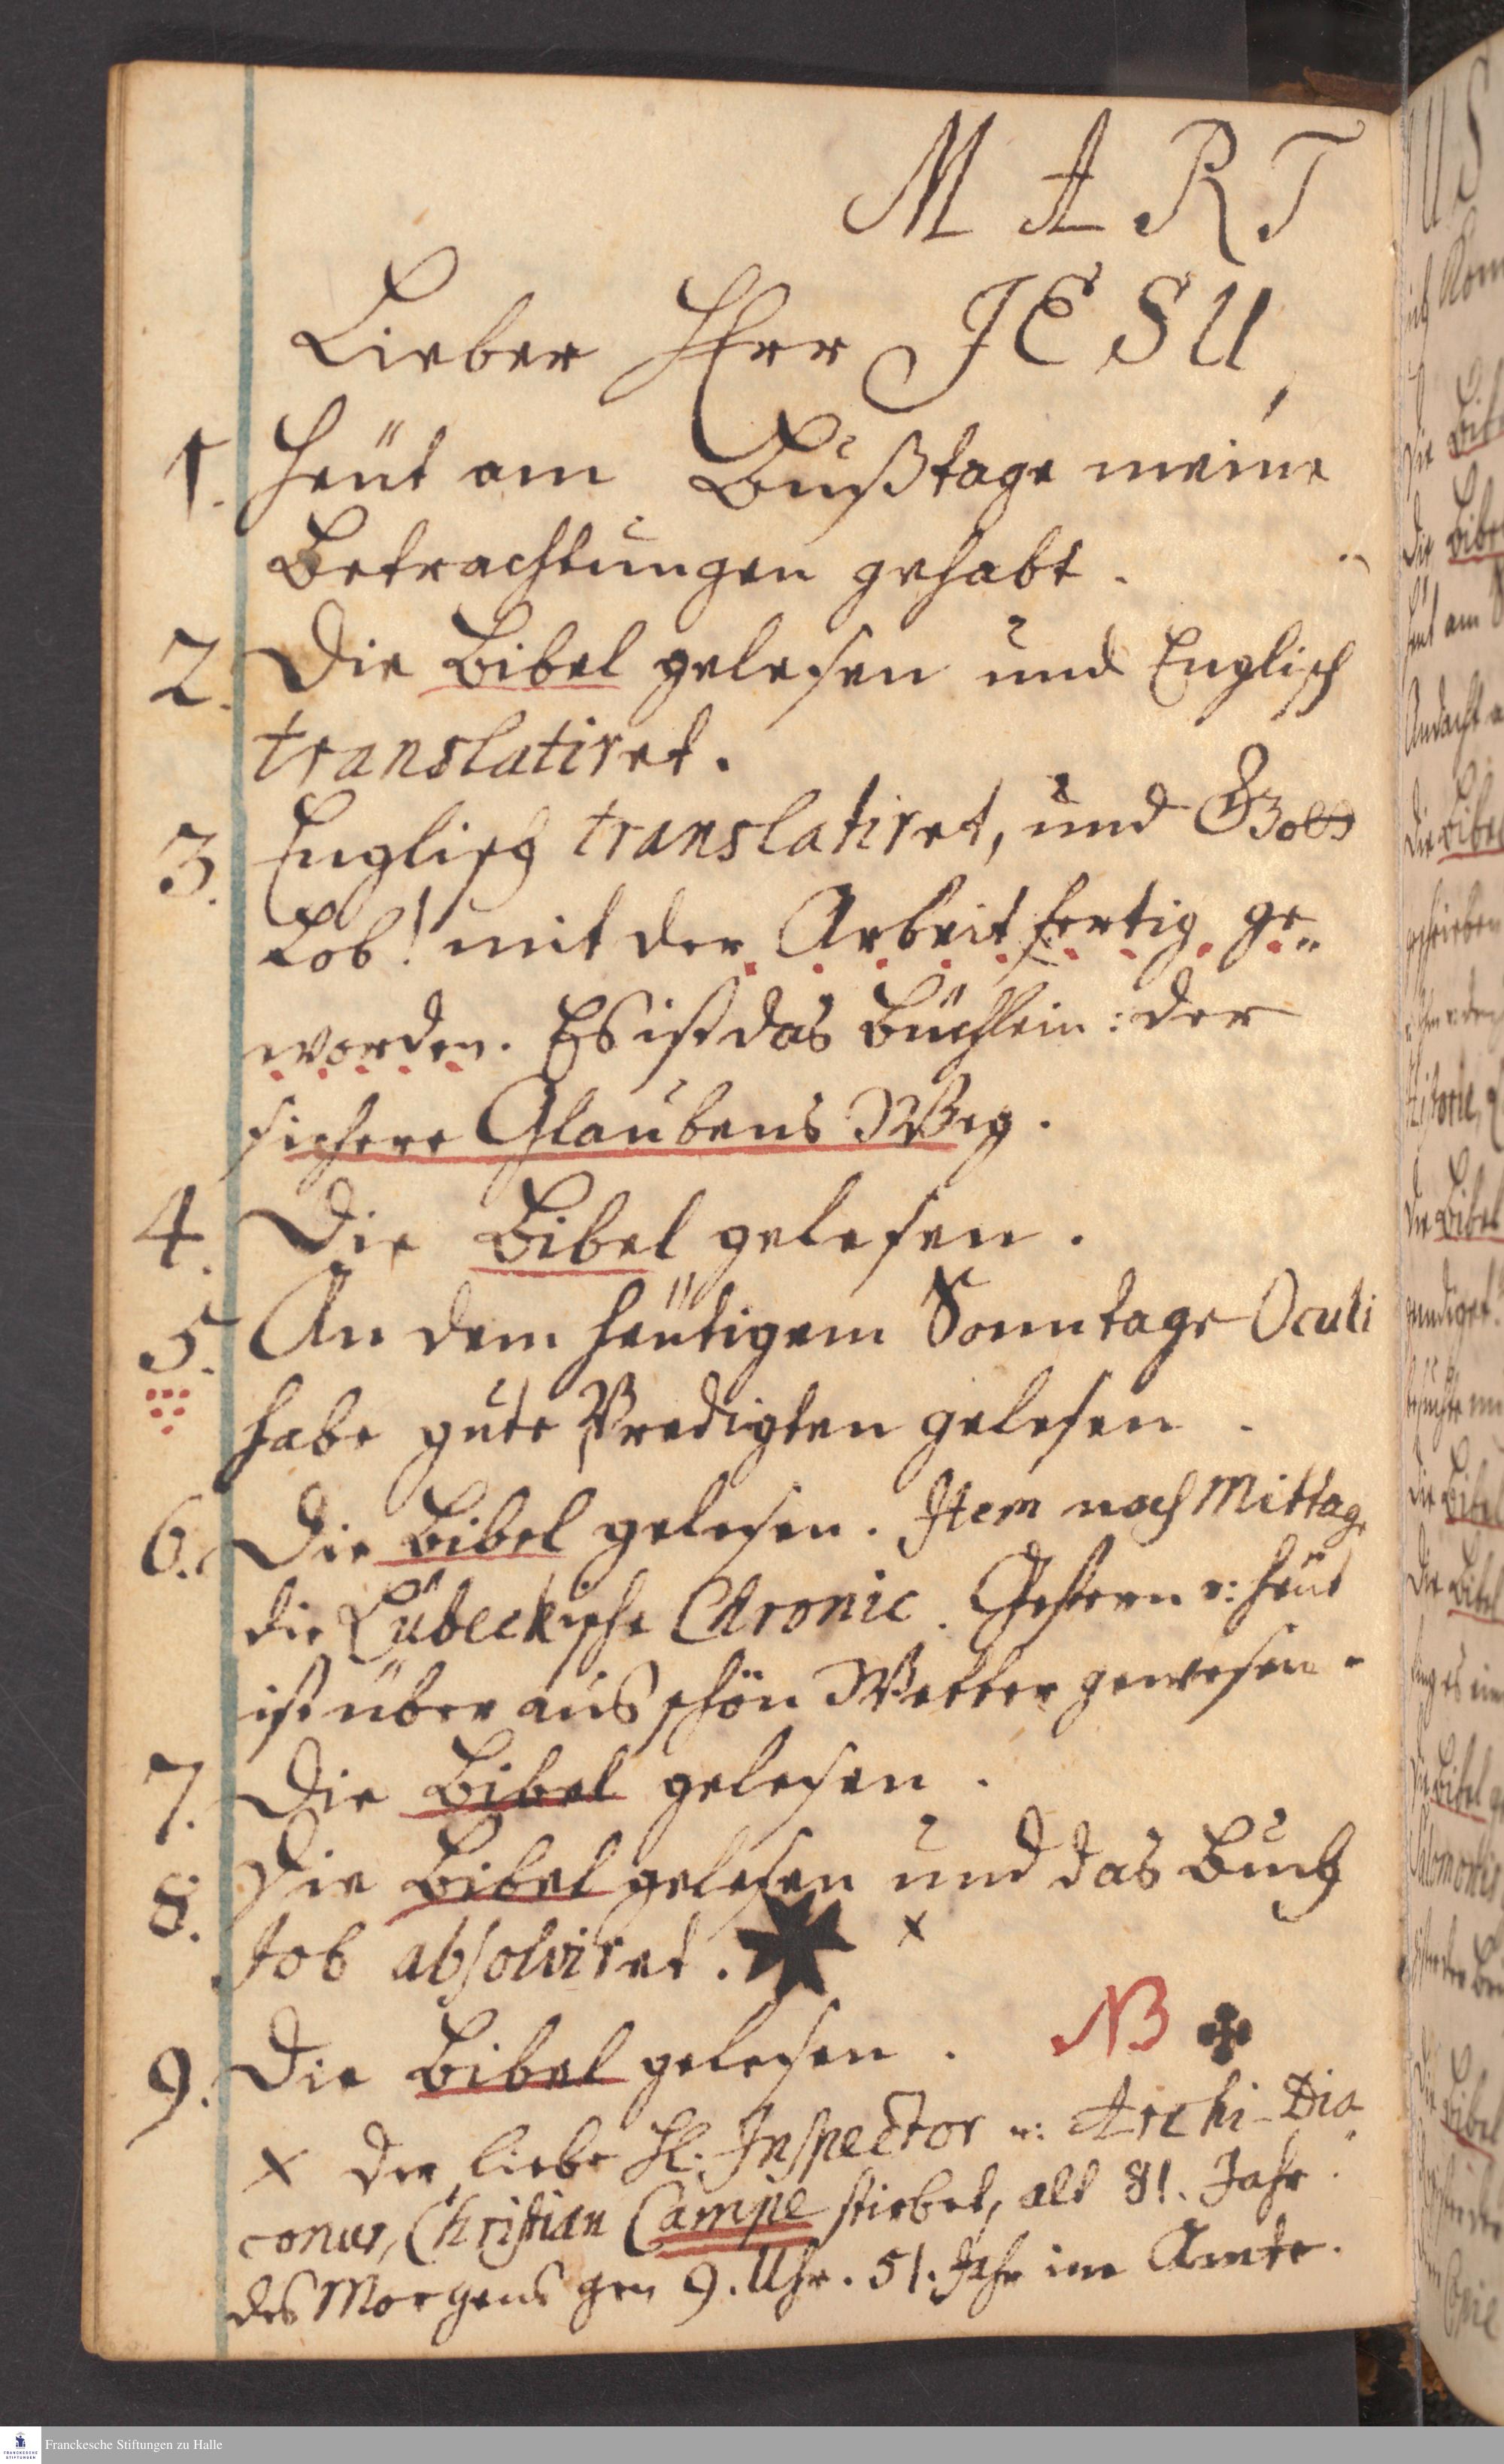 MART
Lieber HErr JESU,
1. Heüt am Bußtage meine
Betrachtungen gehabt.
2. Die Bibel gelesen und Englisch
translatiret.
3. Englisch translatiret, und Gott
Lob! mit der Arbeit fertig ge„
worden. Es ist das Büchlein: der
sichere Glaubens Weg.
4. Die Bibel gelesen.
5. An dem heütigem Sonntage Oculi
habe gute Predigten gelesen.
6. Die Bibel gelesen. Item nach Mittage
die Lübeckische Chronic. Gestern u: heüt
ist über aus schön Wetter gewesen.
7. Die Bibel gelesen.
8. Die Bibel gelesen und das Buch
Job absolviret. x
9. Die Bibel gelesen. NB
x Der liebe H. Inspector u: Archi-Dia
conus, Christian Campe stirbet, alt 81. Jahr.
des Morgens gen 9. Uhr. 51. Jahr im Amte.
Franckesche Stiftungen zu Halle